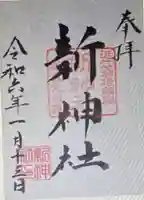 奉拝
新神社
令和六年一月十三日
新神